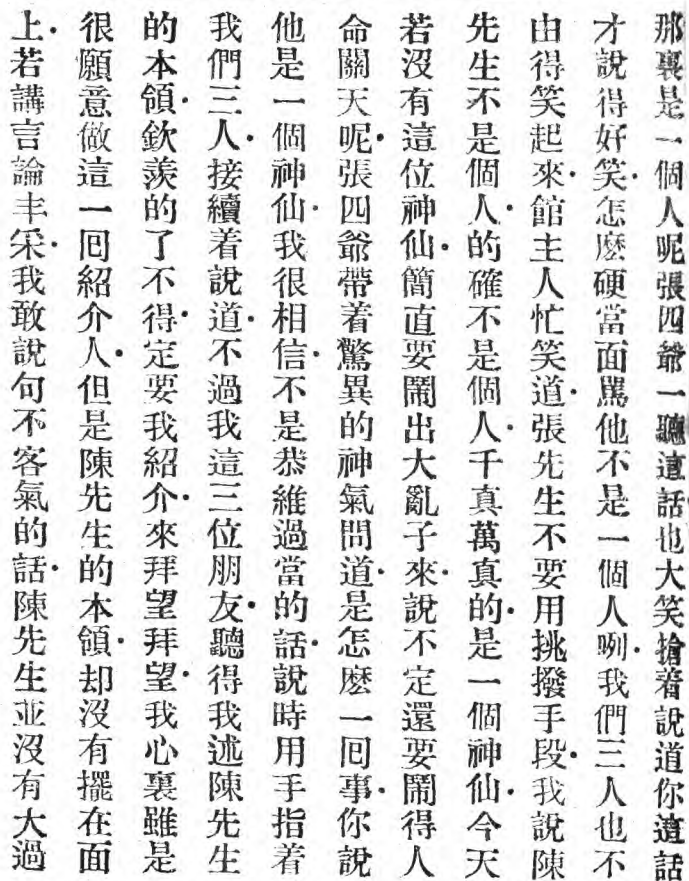 那裏是一個人呢張四爺一聽這話也大笑搶着說道你這話
才說得好笑·怎麼硬當面罵他不是一個人咧·我們三人也不
由得笑起來·館主人忙笑道·張先生不要用挑撥手段·我說陳
先生不是個人·的確不是個人·千真萬真的·是一個神仙·今天
若沒有這位神仙·簡直要鬧出大亂子來·說不定還要鬧得人
命關天呢·張四爺帶着驚異的神氣問道·是怎麼一回事·你說
他是一個神仙·我很相信·不是恭維過當的話·說時用手指着
我們三人·接續着說道·不過我這三位朋友·聽得我述陳先生
的本領·欽羨的了不得·定要我紹介·來拜望拜望·我心裏雖是
很願意做這一回紹介人·但是陳先生的本領·却沒有擺在面
上·若講言論丰采·我敢說句不客氣的話·陳先生並沒有大過